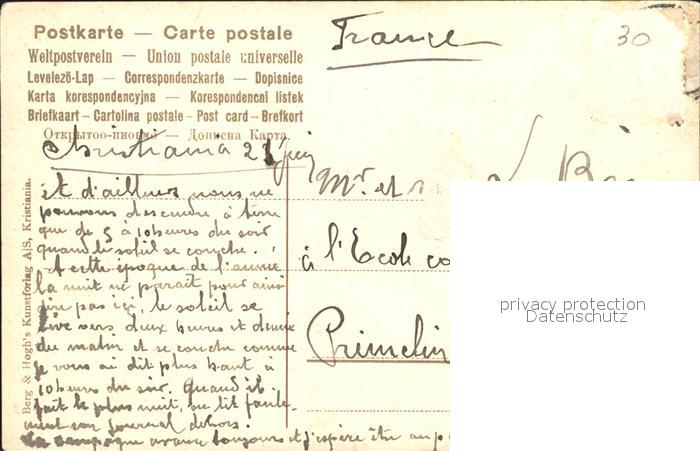 Postkarte — Carte postale
Weltpostverein — Union postale universelle
Levelezö-Lap — Correspondenzkarte — Dopisnice
Karta korespondencyjna — Korespondencni lístek
Briefkaart – Cartolina postale – Post card – Brefkort
Открытое письмо — Дописна Карта.
France
30
Berg & Høgh's Kunstforlag A|S, Kristiania.
Christiania 21 juin
et d'ailleurs nous ne
pouvons descendre à terre
que de 5 à 10 heures du soir
quand le soleil se couche.
A cette époque de l'année
la nuit ne parait pour ainsi
dire pas ici, le soleil se
lève vers deux heures et demie
du matin et se couche comme
je vous ai dit plus haut à
10 heures du soir. Quand il
fait le plus nuit, on lit facile-
ment son journal dehors.
La campagne avance toujours et j'espère être au
Mr et
à l'Ecole
Primelin
privacy protection
Datenschutz